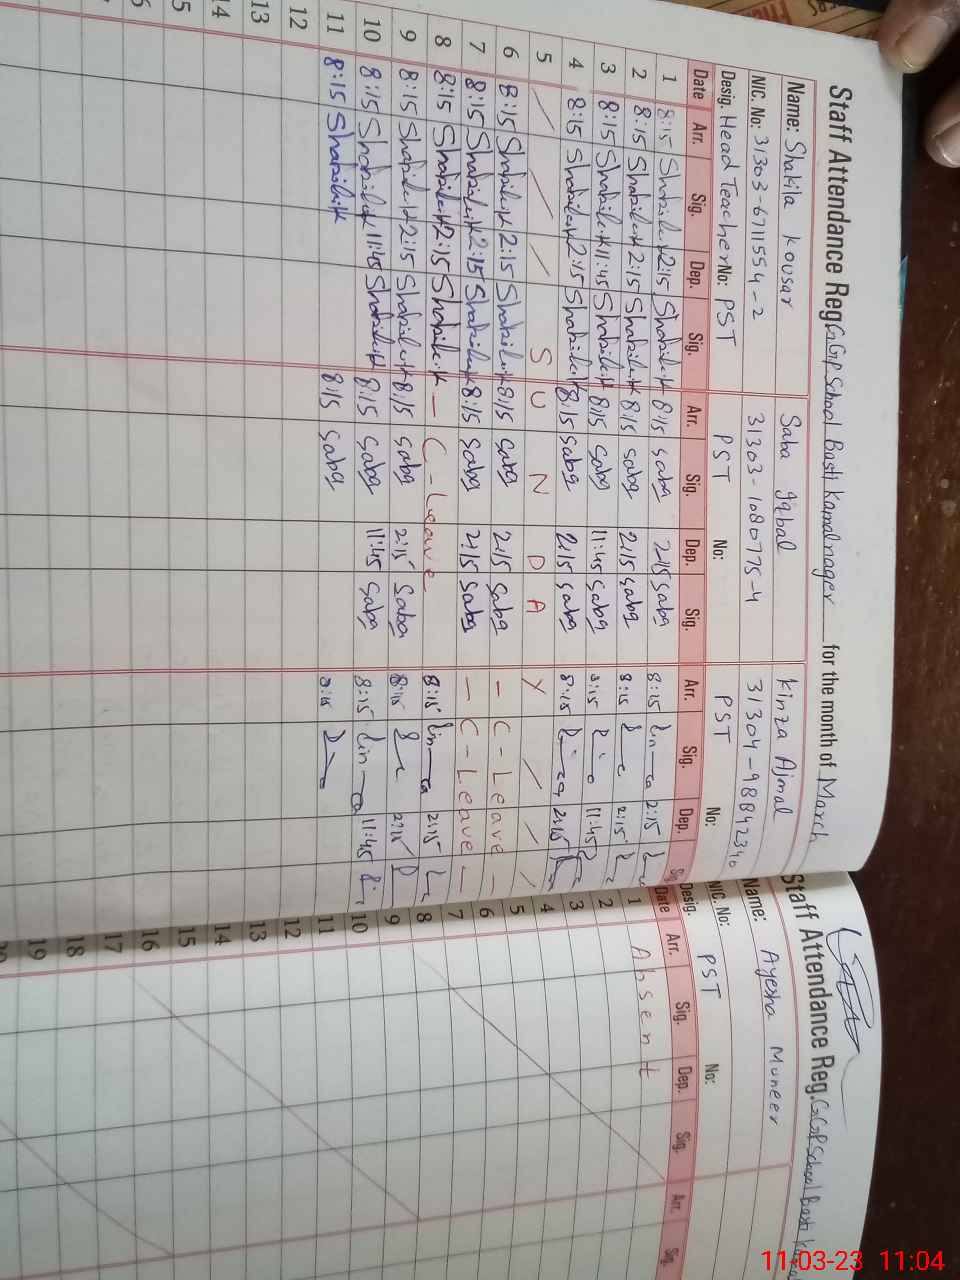 Staff Attendance Reg. GGP School Basti Kamal nager for the month of March
Name: Shakila Kousar Saba Iqbal Kinza Ajmal
NIC. No: 31303-6711554-2 31303-1080775-4 31304-98842340
Desig. Head Teacher No: PST PST No: PST No:
Date Arr. Sig. Dep. Sig. Arr. Sig. Dep. Sig. Arr. Sig. Dep. Sig.
1 8:15 Shakila K 2:15 Shakila K 8:15 Saba 2:15 Saba 8:15 2:15
2 8:15 Shakila K 2:15 Shakila K 8:15 Saba 2:15 Saba 8:15 2:15
3 8:15 Shakila K 11:45 Shakila K 8:15 Saba 11:45 Saba 8:15 11:45
4 8:15 Shakila K 2:15 Shakila K 8:15 Saba 2:15 Saba 8:15 2:15
5 S U N D A Y
6 8:15 Shakila K 2:15 Shakila K 8:15 Saba 2:15 Saba – C - Leave –
7 8:15 Shakila K 2:15 Shakila K 8:15 Saba 2:15 Saba – C - Leave –
8 8:15 Shakila K 2:15 Shakila K – C - Leave 8:15 2:15
9 8:15 Shakila K 2:15 Shakila K 8:15 Saba 2:15 Saba 8:15 2:15
10 8:15 Shakila K 11:45 Shakila K 8:15 Saba 11:45 Saba 8:15 11:45
11 8:15 Shakila K 8:15 Saba 8:15
12
13
14
15
Staff Attendance Reg. GGP School Basti
Name: Ayesha Muneer
NIC. No:
Desig. PST No:
Date Arr. Sig. Dep. Sig. Arr. Sig.
1 Absent
2
3
4
5
6
7
8
9
10
11
12
13
14
15
16
17
18
19
20
11-03-23 11:04